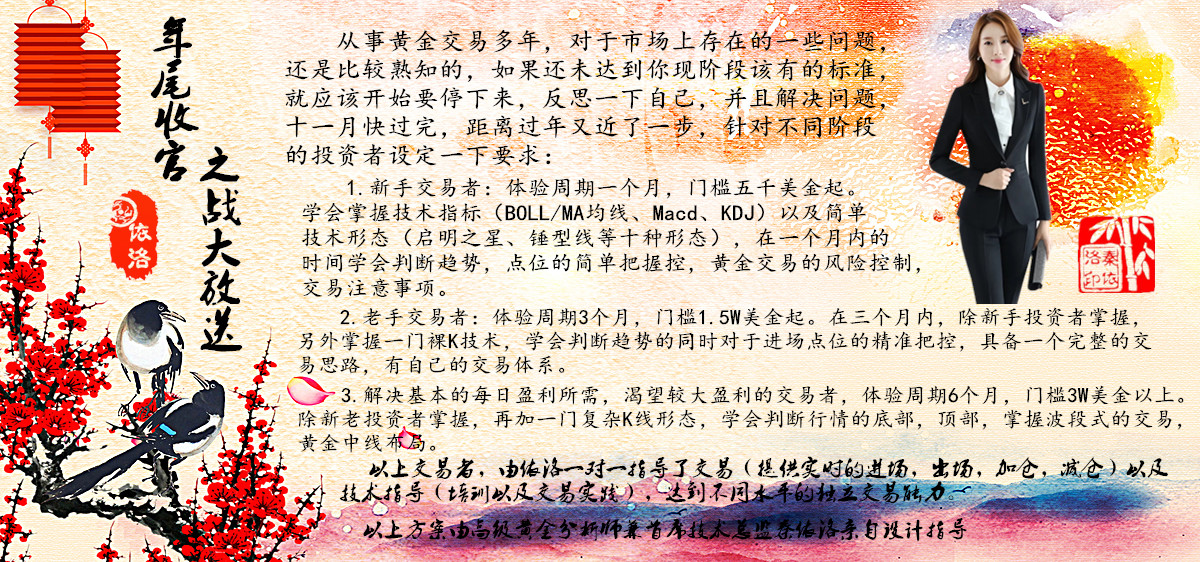 年尾收官
之战大放送
依洛
从事黄金交易多年，对于市场上存在的一些问题，
还是比较熟知的，如果还未达到你现阶段该有的标准，
就应该开始要停下来，反思一下自己，并且解决问题，
十一月快过完，距离过年又近了一步，针对不同阶段
的投资者设定一下要求：
1. 新手交易者：体验周期一个月，门槛五千美金起。
学会掌握技术指标（BOLL/MA均线、Macd、KDJ）以及简单
技术形态（启明之星、锤型线等十种形态），在一个月内的
时间学会判断趋势，点位的简单把握控，黄金交易的风险控制，
交易注意事项。
秦依
洛印
2. 老手交易者：体验周期3个月，门槛1.5W美金起。在三个月内，除新手投资者掌握，
另外掌握一门裸K技术，学会判断趋势的同时对于进场点位的精准把控，具备一个完整的交
易思路，有自己的交易体系。
3. 解决基本的每日盈利所需，渴望较大盈利的交易者，体验周期6个月，门槛3W美金以上。
除新老投资者掌握，再加一门复杂K线形态，学会判断行情的底部，顶部，掌握波段式的交易，
黄金中线布局。
以上交易者，由依洛一对一指导了交易（提供实时的进场，出场，加仓，减仓）以及
技术指导（培训以及交易实践），达到不同水平的独立交易能力。
以上方案由高级黄金分析师兼首席技术总监秦依洛亲自设计指导